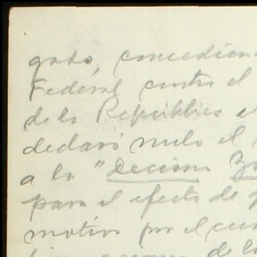 gado, concedien
Federal contra el
de la República el
declaró nulo el
a la "Decima
para el efecto de q
motivo por el cua
de la